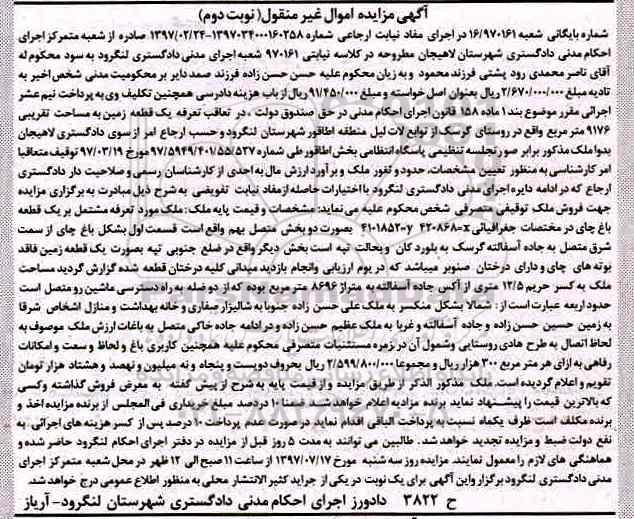 آگهی مزایده اموال غیر منقول( نوبت دوم)
شماره بایگانی شعبه ۱۶/۹۷۰۱۶۱ در اجرای مفاد نیابت ارجاعی شماره ۱۳۹۷۰۳۴۰۰۰۱۶۰۲۵۸-۱۳۹۷/۰۲/۲۴ صادره از شعبه متمرکز اجرای
احکام مدنی دادگستری شهرستان لاهیجان مطروحه در کلاسه نیابتی ۹۷۰۱۶۱ شعبه اجرای مدنی دادگستری لنگرود به سود محکوم له
آقای ناصر محمدی رود پشتی فرزند محمود و به زیان محکوم علیه حسن حسن زاده فرزند صمد دایر بر محکومیت مدنی شخص اخیر به
تادیه مبلغ ۲/۶۷۰/۰۰۰/۰۰۰ ریال بعنوان اصل خواسته و مبلغ ۹۱/۴۵۰/۰۰۰ ریال از باب هزینه دادرسی همچنین تکلیف وی به پرداخت نیم عشر
اجرائی مقرر موضوع بند ۱ ماده ۱۵۸ قانون اجرای احکام مدنی در حق صندوق دولت ، در تعاقب تعرفه یک قطعه زمین به مساحت تقریبی
۹۱۷۶ متر مربع واقع در روستای گرسک از توابع لات لیل منطقه اطاقور شهرستان لنگرود و حسب ارجاع امر از سوی دادگستری لاهیجان
بدوا ملک مذکور برابر صورتجلسه تنظیمی پاسگاه انتظامی بخش اطاقور طی شماره ۹۷/۵۹۴۹/۴۰۱/۵۵/۵۳۷ مورخ ۹۷/۰۳/۱۹ توقیف متعاقبا
امر کارشناسی به منظور تعیین مشخصات، حدود و ثغور ملک و برآورد ارزش مال به احدی از کارشناسان رسمی و صلاحیت دار دادگستری
ارجاع که در ادامه دایره اجرای مدنی دادگستری لنگرود با اختیارات حاصله از مفاد نیابت تفویضی به شرح ذیل مبادرت به برگزاری مزایده
جهت فروش ملک توقیفی متصرفی شخص محکوم علیه می نماید: مشخصات و قیمت پایه ملک : ملک مورد تعرفه مشتمل بر یک قطعه
باغ چای در مختصات جغرافیائی x=۴۲۰۸۶۸ y=۴۱۰۱۸۵۲ بصورت دو بخش متصل بهم واقع است قسمت اول بشکل باغ چای از سمت
شرق متصل به جاده آسفالته گرسک به بلوردکان و بحالت تپه است بخش دیگر واقع در ضلع جنوبی تپه بصورت یک قطعه زمین فاقد
بوته های چای و دارای درختان صنوبر میباشد که در یوم ارزیابی وانجام بازدید میدانی کلیه درختان قطعه شده گزارش گردید مساحت
ملک به کسر حریم ۱۲/۵ متری از آکس جاده آسفالته به متراژ ۸۶۹۶ متر مربع بوده که از دو ضله به راه دسترسی ماشین رو متصل است
حدود اربعه عبارت است از : شمالا بشکل منکسر به ملک علی حسن زاده جنوبا به شالیزار صفاری و خانه بهداشت و منازل اشخاص شرقا
به زمین حسین حسن زاده و جاده آسفالته و غربا به ملک عظیم حسن زاده و در ادامه جاده خاکی متصل به باغات ارزش ملک موصوف به
لحاظ اتصال به طرح هادی روستایی وشمول آن در زمره مستثنیات متصرفی محکوم علیه همچنین کاربری باغ و لحاظ وسعت و امکانات
رفاهی به ازای هر متر مربع ۳۰۰ هزار ریال و مجموعا ۲/۵۹۹/۸۰۰/۰۰۰ ریال بحروف دویست و پنجاه و نه میلیون و نهصد و هشتاد هزار تومان
تقویم و اعلام گردیده است. ملک مذکور الذکر از طریق مزایده و از قیمت پایه به شرح از پیش گفته به معرض فروش گذاشته وکسی
که بالاترین قیمت را پیشنهاد نماید برنده مزاد به اعلام خواهد شد ضمنا ۱۰ درصد مبلغ خریداری فی المجلس از برنده مزایده اخذ و
برنده مکلف است ظرف یکماه نسبت به پرداخت الباقی اقدام نماید در صورت عدم پرداخت ۱۰ درصد پس از کسر هزینه های اجرائی به
نفع دولت ضبط و مزایده تجدید خواهد شد. طالبین می توانند به مدت ۵ روز قبل از مزایده در دفتر اجرای احکام لنگرود حاضر شده و
هماهنگی های لازم را معمول نمایند. مزایده روز سه شنبه مورخ ۱۳۹۷/۰۷/۱۷ از ساعت ۱۱ صبح الی ۱۲ ظهر در محل شعبه متمرکز اجرای
مدنی دادگستری لنگرود برگزار واین آگهی برای یک نوبت در یکی از جراید کثیر الانتشار محلی به منظور اطلاع عمومی درج خواهد شد.
ح ۳۸۲۲ دادورز اجرای احکام مدنی دادگستری شهرستان لنگرود- آریاز